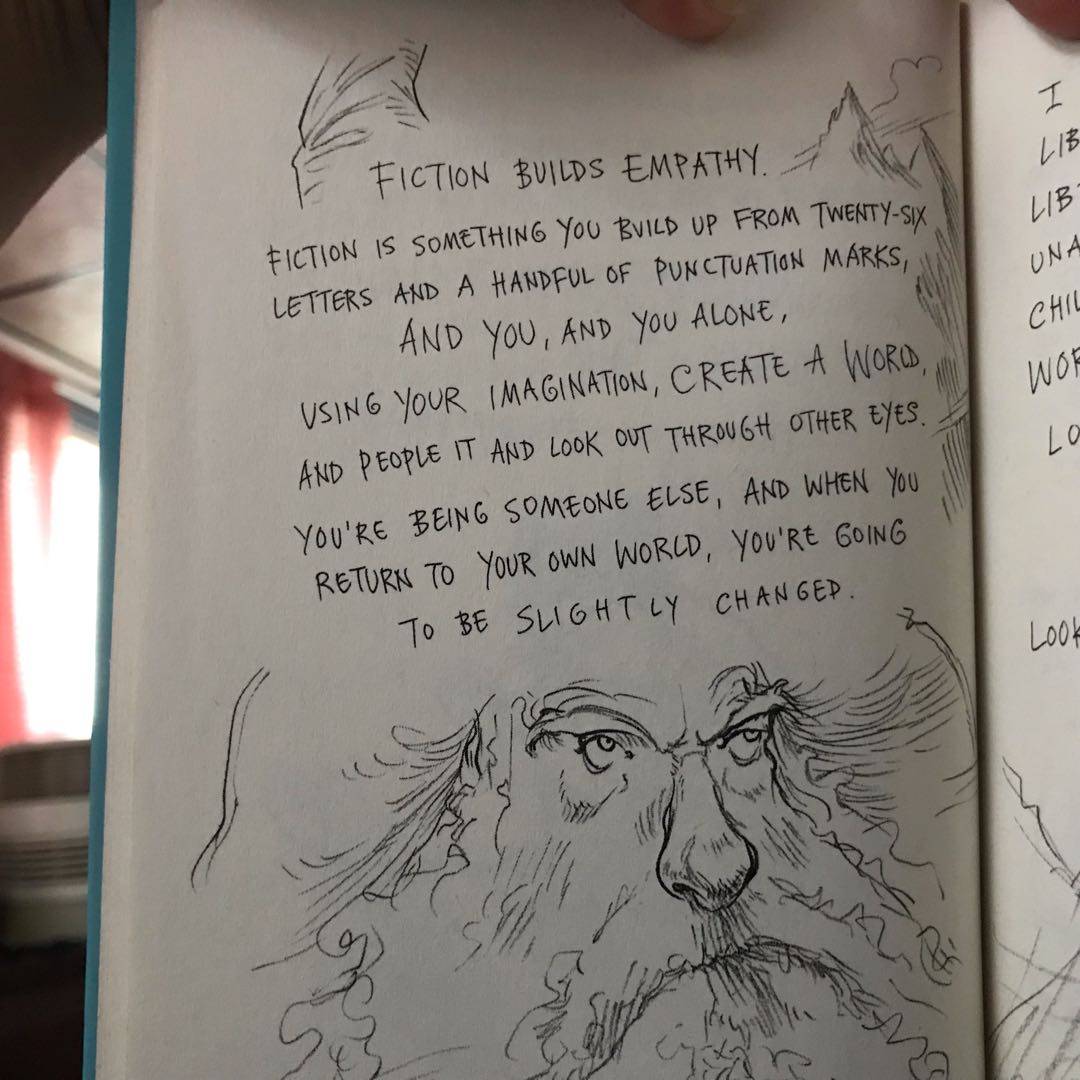 FICTION BUILDS EMPATHY.
FICTION IS SOMETHING YOU BUILD UP FROM TWENTY-SIX
LETTERS AND A HANDFUL OF PUNCTUATION MARKS,
AND YOU, AND YOU ALONE,
USING YOUR IMAGINATION, CREATE A WORLD,
AND PEOPLE IT AND LOOK OUT THROUGH OTHER EYES.
YOU'RE BEING SOMEONE ELSE, AND WHEN YOU
RETURN TO YOUR OWN WORLD, YOU'RE GOING
TO BE SLIGHTLY CHANGED.
I